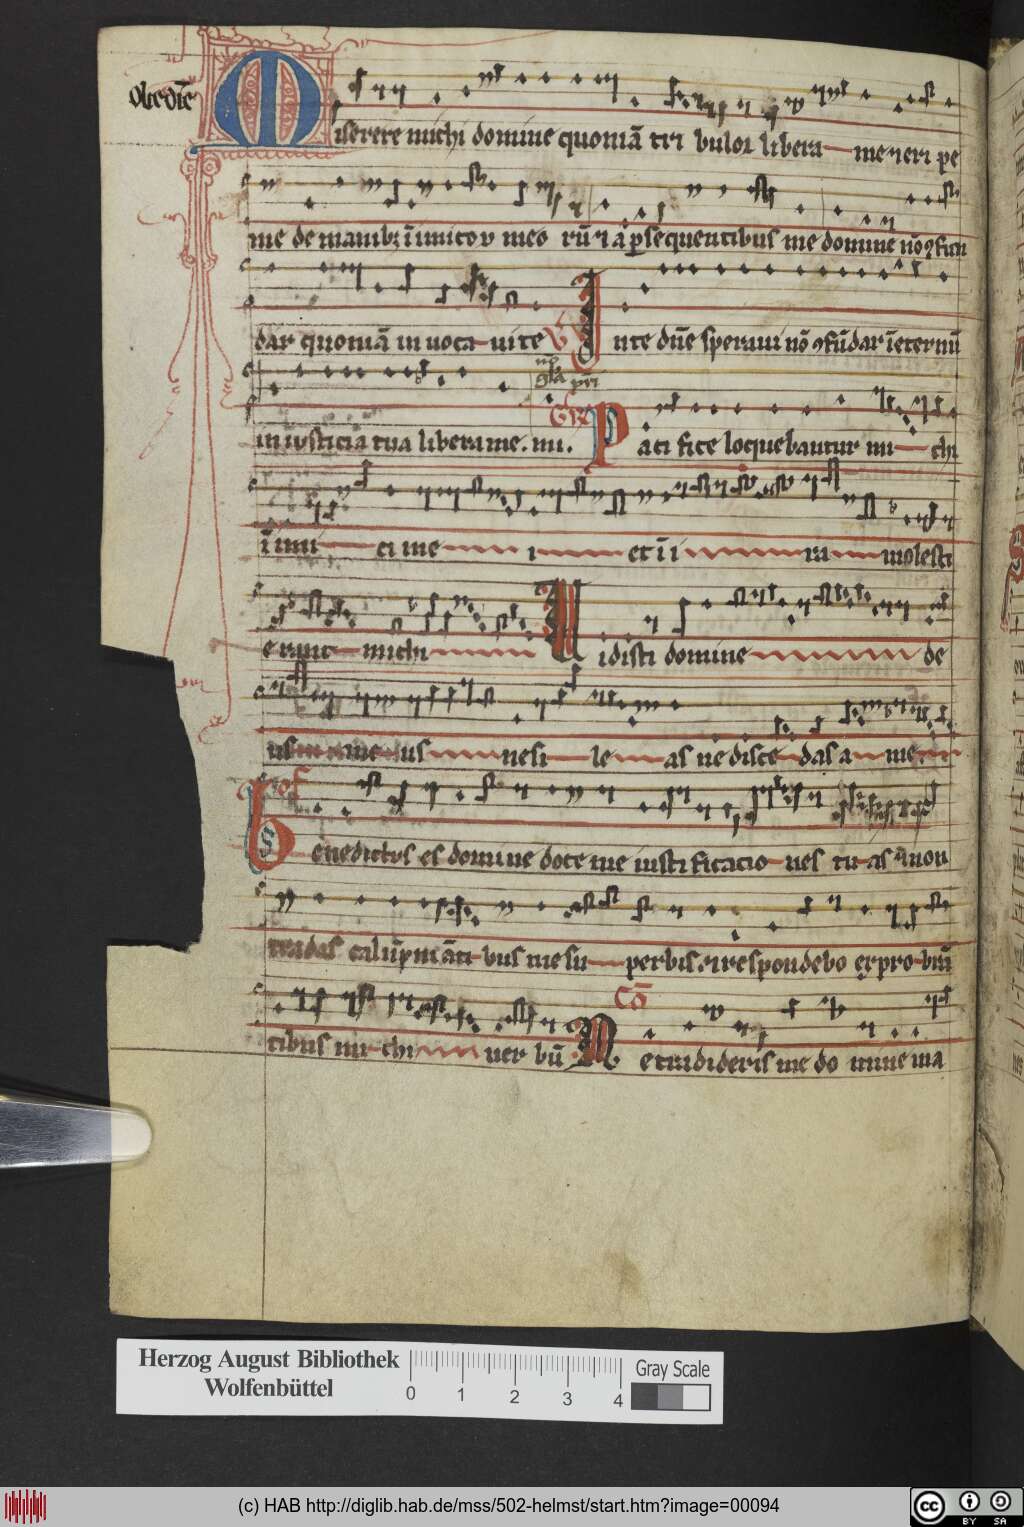 Miserere michi domine quoniā tri bulor libera me ⁊ eri pe
me de manibꝫ īimicoꝝ meoꝝ ⁊ a ꝑsequentibus me domine nō ꝯfun
dar quoniā in uoca ui te V In te dn̄e speraui nō ꝯfūdar ī eternū
gl̄a pr̄i
in iusticia tua libera me.
Gr̄ Paci fice loquebantur mi chi
īimi ci me i et ī i ra molesti
e rant michi V idisti domine de
us me us ne si le as ne disce das a me
Of
Benedictus es domine doce me iusti ficacio nes tu as ⁊ non
tradas calūpniāti bus me su perbis ⁊ respondebo exprobrā
Cō
tibus mi chi uer bū Ne tradideris me do mine in a
Herzog August Bibliothek
Wolfenbüttel
0 1 2 3 4
Gray Scale
(c) HAB http://diglib.hab.de/mss/502-helmst/start.htm?image=00094
cc BY SA